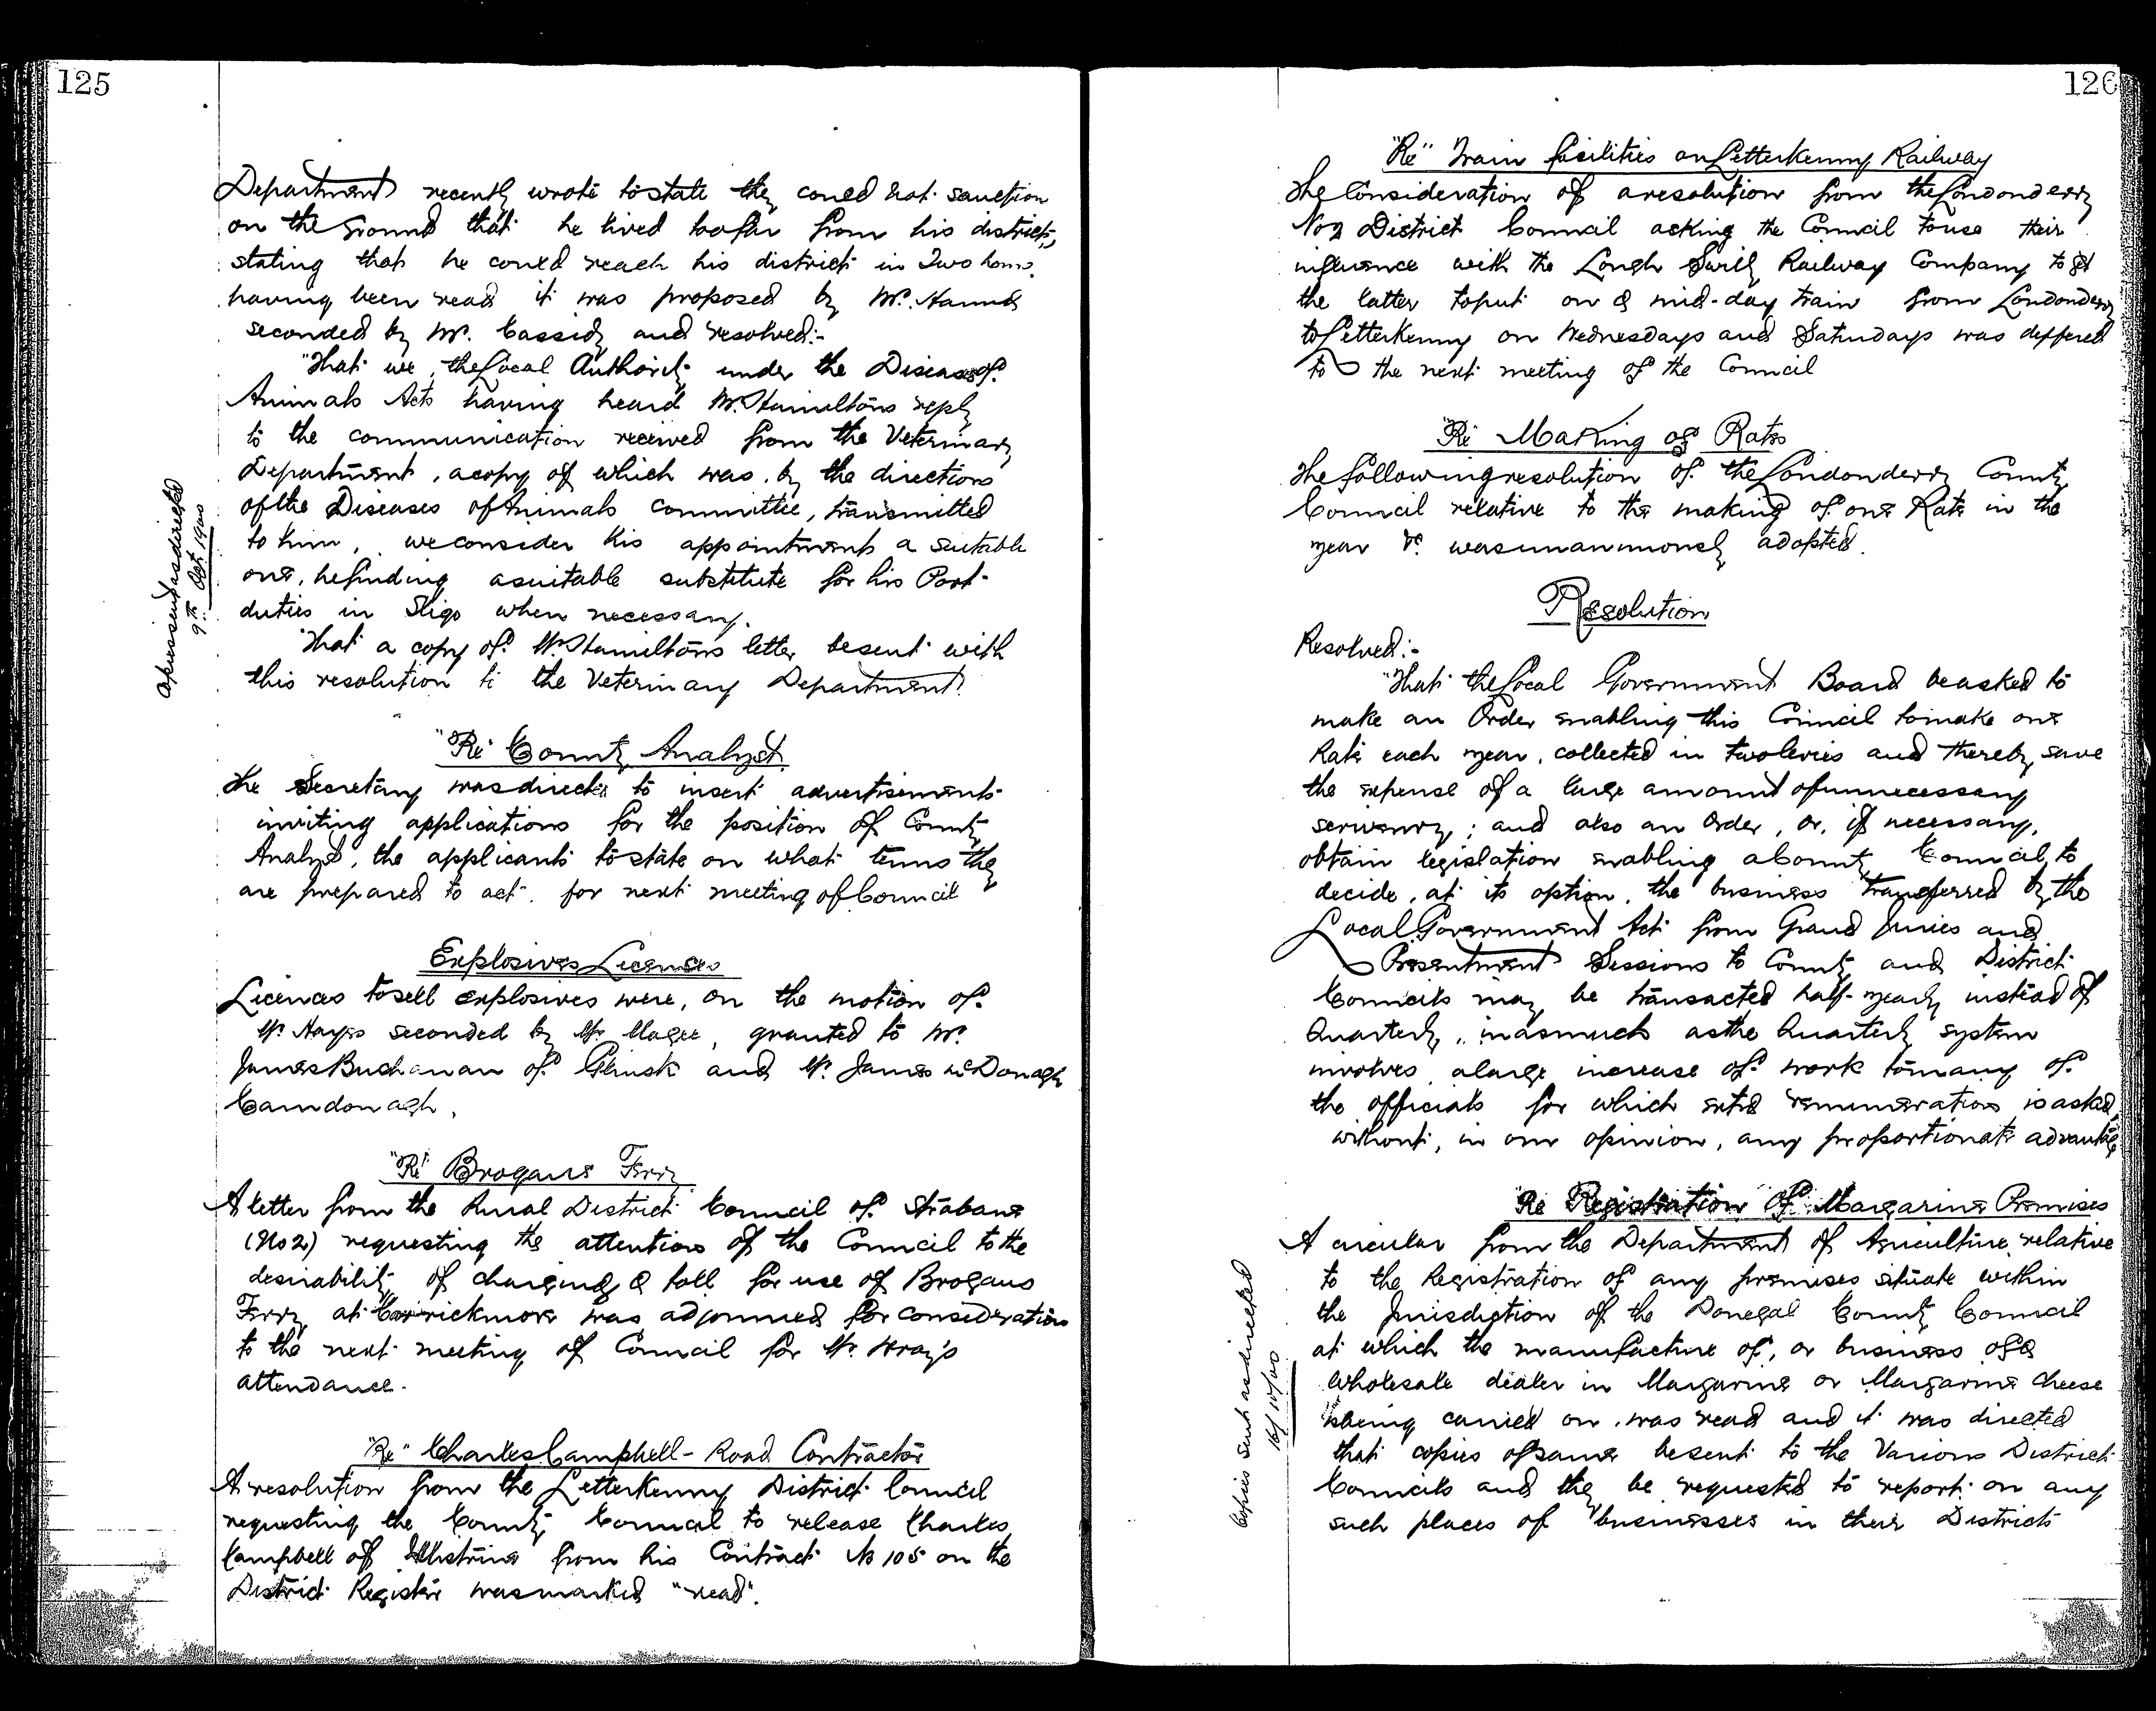 125
Department recently wrote to state they could not sanction
on the ground that he lived too far from his district,
stating that he could reach his district in Two hours.
having been read it was proposed by Mr. Hannah
seconded by Mr. Cassidy and resolved:-
"That we, the Local Authority under the Diseases of
Animals Acts having heard Mr. Hamiltons reply
to the communication received from the Veterinary
Department, a copy of which was, by the directions
of the Diseases of Animals committee, transmitted
to him, we consider his appointment a suitable
one, he finding a suitable substitute for his Port
duties in Sligo when necessary.
That a copy of Mr. Hamiltons letter be sent with
this resolution to the Veterinary Department.
Copies sent as directed
9th Oct 1900
"Re" County Analyst.
The Secretary was directed to insert advertisements
inviting applications for the position of County
Analyst, the applicants to state on what terms they
are prepared to act. for next meeting of Council
Explosives Licenses
Licences to sell explosives were, on the motion of
Mr Hayes seconded by Mr. Magee, granted to Mr.
James Buchanan of Glinsk and Mr. James McDonagh
Carndonagh.
"Re" Brogans Ferry
A letter from the Rural District Council of Strabane
(No 2) requesting the attention of the Council to the
desirability of charging a toll for use of Brogans
Ferry at Carrickmore was adjourned for consideration
to the next meeting of Council for Mr. Wray's
attendance.
"Re" Charles Campbell - Road Contractor
A resolution from the Letterkenny District Council
requesting the County Council to release Charles
Campbell of from his Contract No 105 on the
District Register was marked "read".
126
"Re" Train facilities on Letterkenny Railway
The Consideration of a resolution from the Londonderry
No 2 District Council asking the Council to use their
influence with the Lough Swilly Railway Company to get
the latter to put on a mid-day train from Londonderry
to Letterkenny on Wednesdays and Saturdays was deffered
to the next meeting of the Council
"Re Making of Rates
The following resolution of the Londonderry County
Council relative to the making of one Rate in the
year &c. was unanimously adopted.
Resolution
Resolved:-
"That the Local Government Board be asked to
make an Order enabling this Council to make one
Rate each year, collected in two levies and thereby save
the expense of a large amount of unnecessary
scrivenry; and also an Order, or, if necessary,
obtain legislation enabling a County Council to
decide, at its option, the business transferred by the
Local Government Act from Grand Juries and
Presentment Sessions to County and District
Councils may be transacted half-yearly instead of
Quarterly, inasmuch as the Quarterly system
involves a large increase of work to many of
the officials for which extra remuneration is asked,
without, in our opinion, any proportionate advantage
Re Registration Of Margarine Premises
A circular from the Department of Agriculture relative
to the Registration of any premises situate within
the Jurisdiction of the Donegal County Council
at which the manufacture of, or business of a
wholesale dealer in Margarine or Margarine cheese
being carried on, was read and it was directed
that copies of same be sent to the Various District
Councils and they be requested to report on any
such places of businesses in their Districts
Copies sent as directed
16/10/00